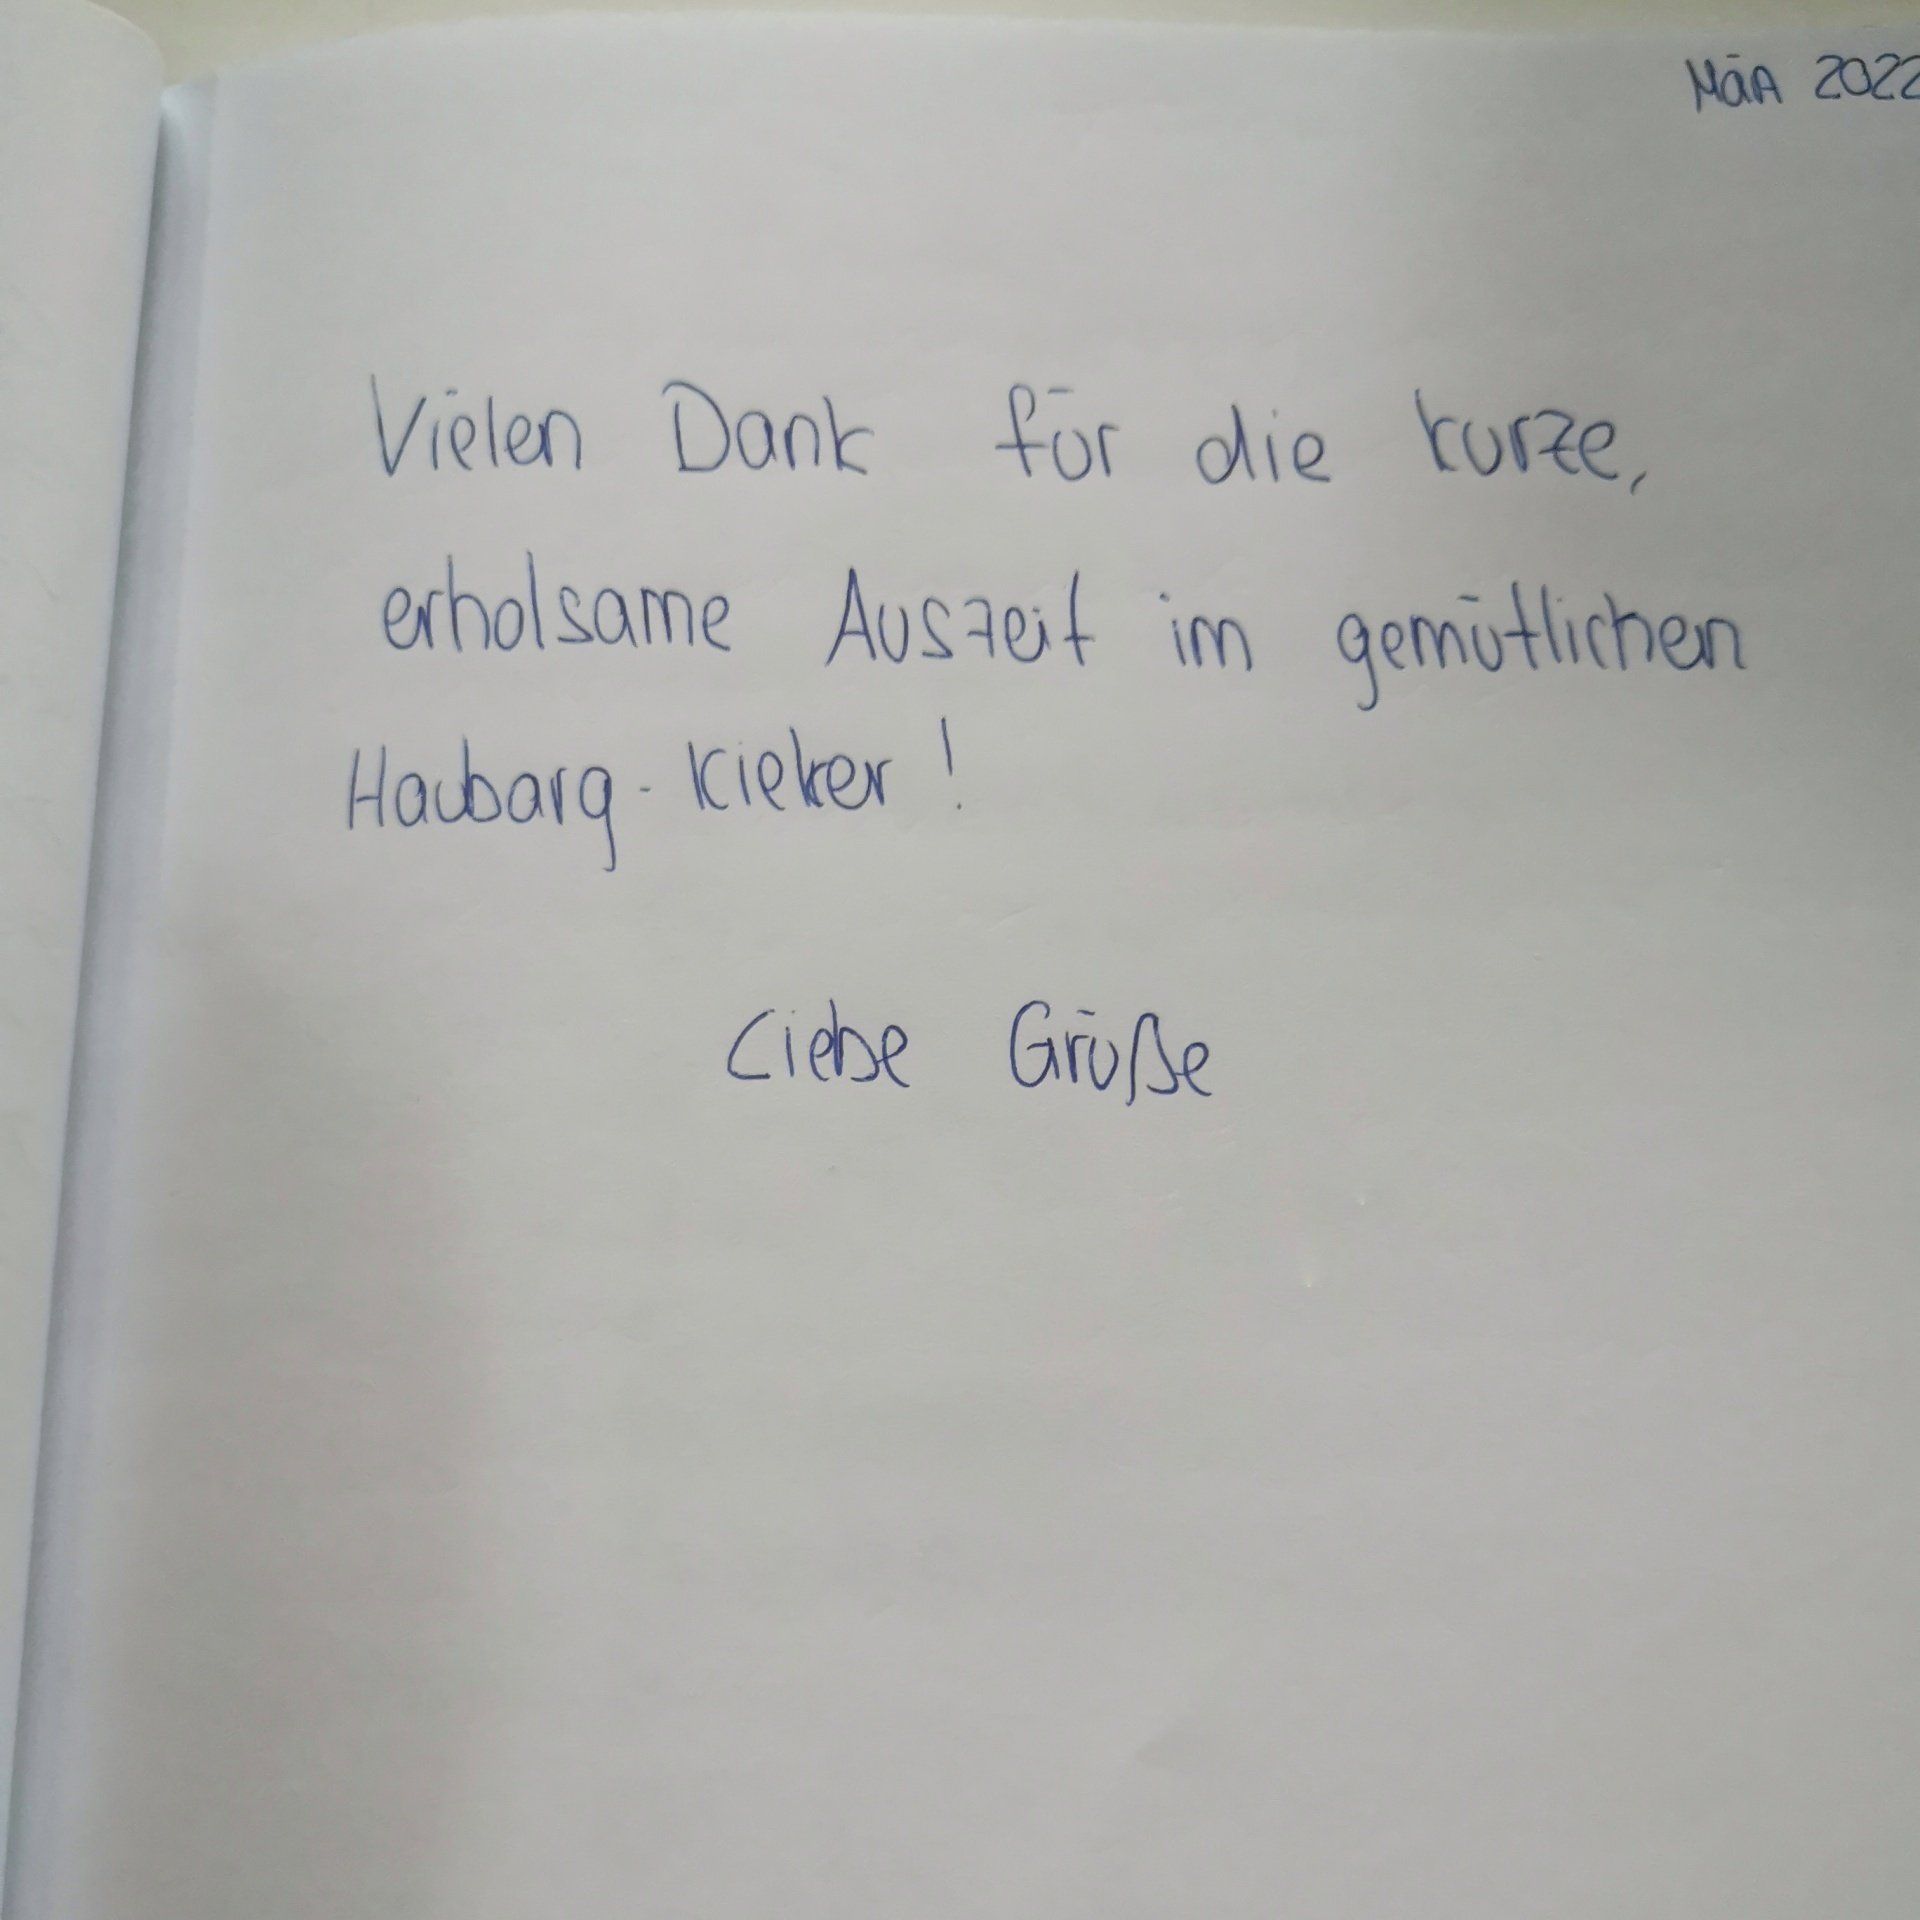 März 2022
Vielen Dank für die kurze,
erholsame Auszeit im gemütlichen
Haubarg-Kieker!
Liebe Grüße